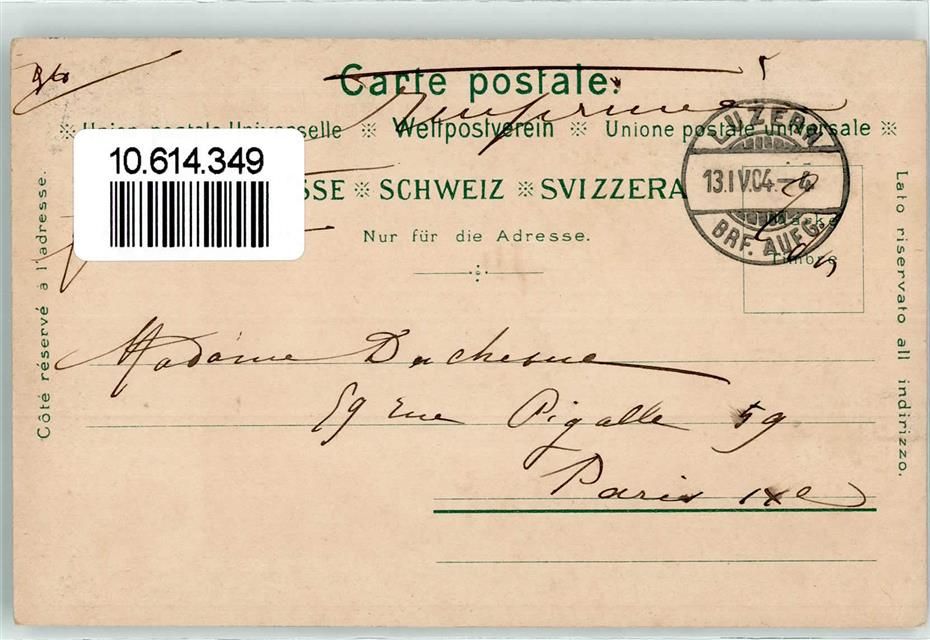 Carte postale.
Imprimé
Union postale Universelle ※ Weltpostverein ※ Unione postale universale ※
10.614.349
SSE ※ SCHWEIZ ※ SVIZZERA
LUZERN
13.IV.04.-4
BRF. AUFG.
Marke
Timbre
Nur für die Adresse.
Côté réservé à l'adresse.
Lato riservato all indirizzo.
Madame Duchesne
59 rue Pigalle 59
Paris IXe